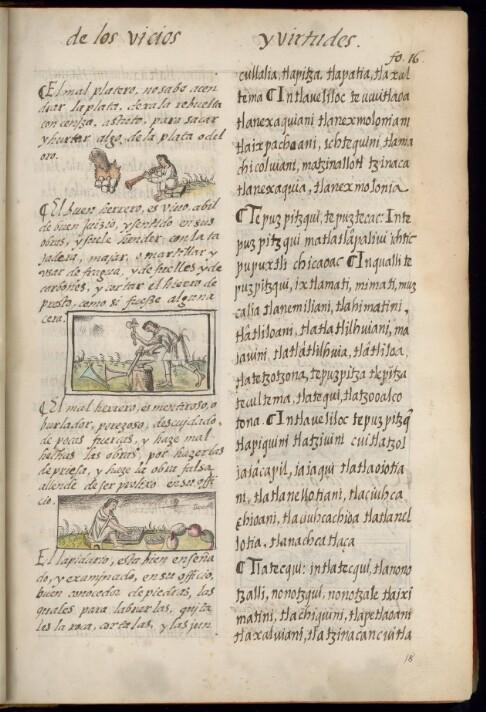 de los vicios
y virtudes.
fo. 16.
¶ El mal platero, no sabe acen
drar la plata, dexala rebuelta
con ceniza, astuto, para sacar
y hurtar algo, de la plata o del
oro.
¶ El buen herrero, es vivo, abil
de buen juizio, y sentido en sus
obras, y suele hender con la ta
jadera, majar, o martillar y
usar de fragua, y de fuelles y de
carbones, y cortar el hierro de
presto, como si fuesse alguna
cera.
¶ El mal herrero, es mentiroso, o
burlador, perezoso, descuydado,
de pocas fuerças, y haze mal
hechas las obras, por hazerlas
de priesa, y haze la obra falsa
allende de ser prolixo en su offi
cio.
El lapidario, esta bien enseña
do, y examinado, en su officio,
buen conocedor de piedras, las
quales para labrarlas, quita
les la roca, cortalas, y las jun
cullalia, tlapitza, tlapatia, tlaxul
tema ¶ In tlaveliloc teucuitlaoa
tlanexaquiani tlanexmoloniani
tlaixpachoani, ichtequini, tlama
chicolviani, matzinallotl tzinaca
tlanexaquia, tlanexmolonia
¶ Tepuzpitzqui, tepuztecac: In te
puzpitzqui matlatlapalivi ichtic
pupuxtli chicaoac ¶ In qualli te
puzpitzqui, ixtlamati, mimati, muz
calia tlanemiliani, tlahimatini,
tlatiloani, tlatlatlilhuiani, ma
iavini, tlatlatilhuia, tlatiloa,
tlatetzotzona, tepuzpitza tlepitza
tecultema, tlatequi, tlatzooalco
tona. ¶ In tlaveliloc tepuzpitzqui
tlapiquini tlatzivini cuitlatzol
iaiacapil, iaiaqui tlatlaoiotia
ni, tlatlanellotiani, tlaciuhca
chioani, tlaciuhcachioa tlatlanel
lotia, tlanachcatlaça
¶ Tlatecqui: in tlatecqui, tlanono
tzalli, nonotzqui, nonotzale tlaixi
matini, tlachiquini, tlapetlaoani
tlaxalviani, tlatzinacancuitla
18